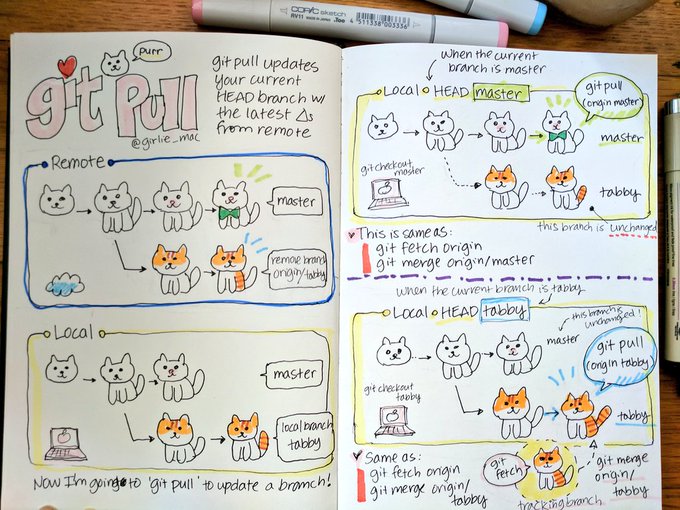 COPIC sketch
RV11 MADE IN JAPAN .Too 4 511338 003336
purr
git Pull
@girlie_mac
git pull updates
your current
HEAD branch w/
the latest Δs
from remote
Remote
master
remote branch
origin/tabby
Local
master
local branch
tabby
Now I'm going to 'git pull' to update a branch!
When the current
branch is master
Local HEAD master
git pull
(origin master)
master
git checkout
master
tabby
this branch is unchanged
This is same as:
git fetch origin
git merge origin/master
When the current branch is tabby
Local HEAD tabby
this branch is
unchanged!
master
git pull
(origin tabby)
git checkout
tabby
tabby
Same as:
git fetch origin
git merge origin/
tabby
git
fetch
tracking branch
git merge
origin/
tabby